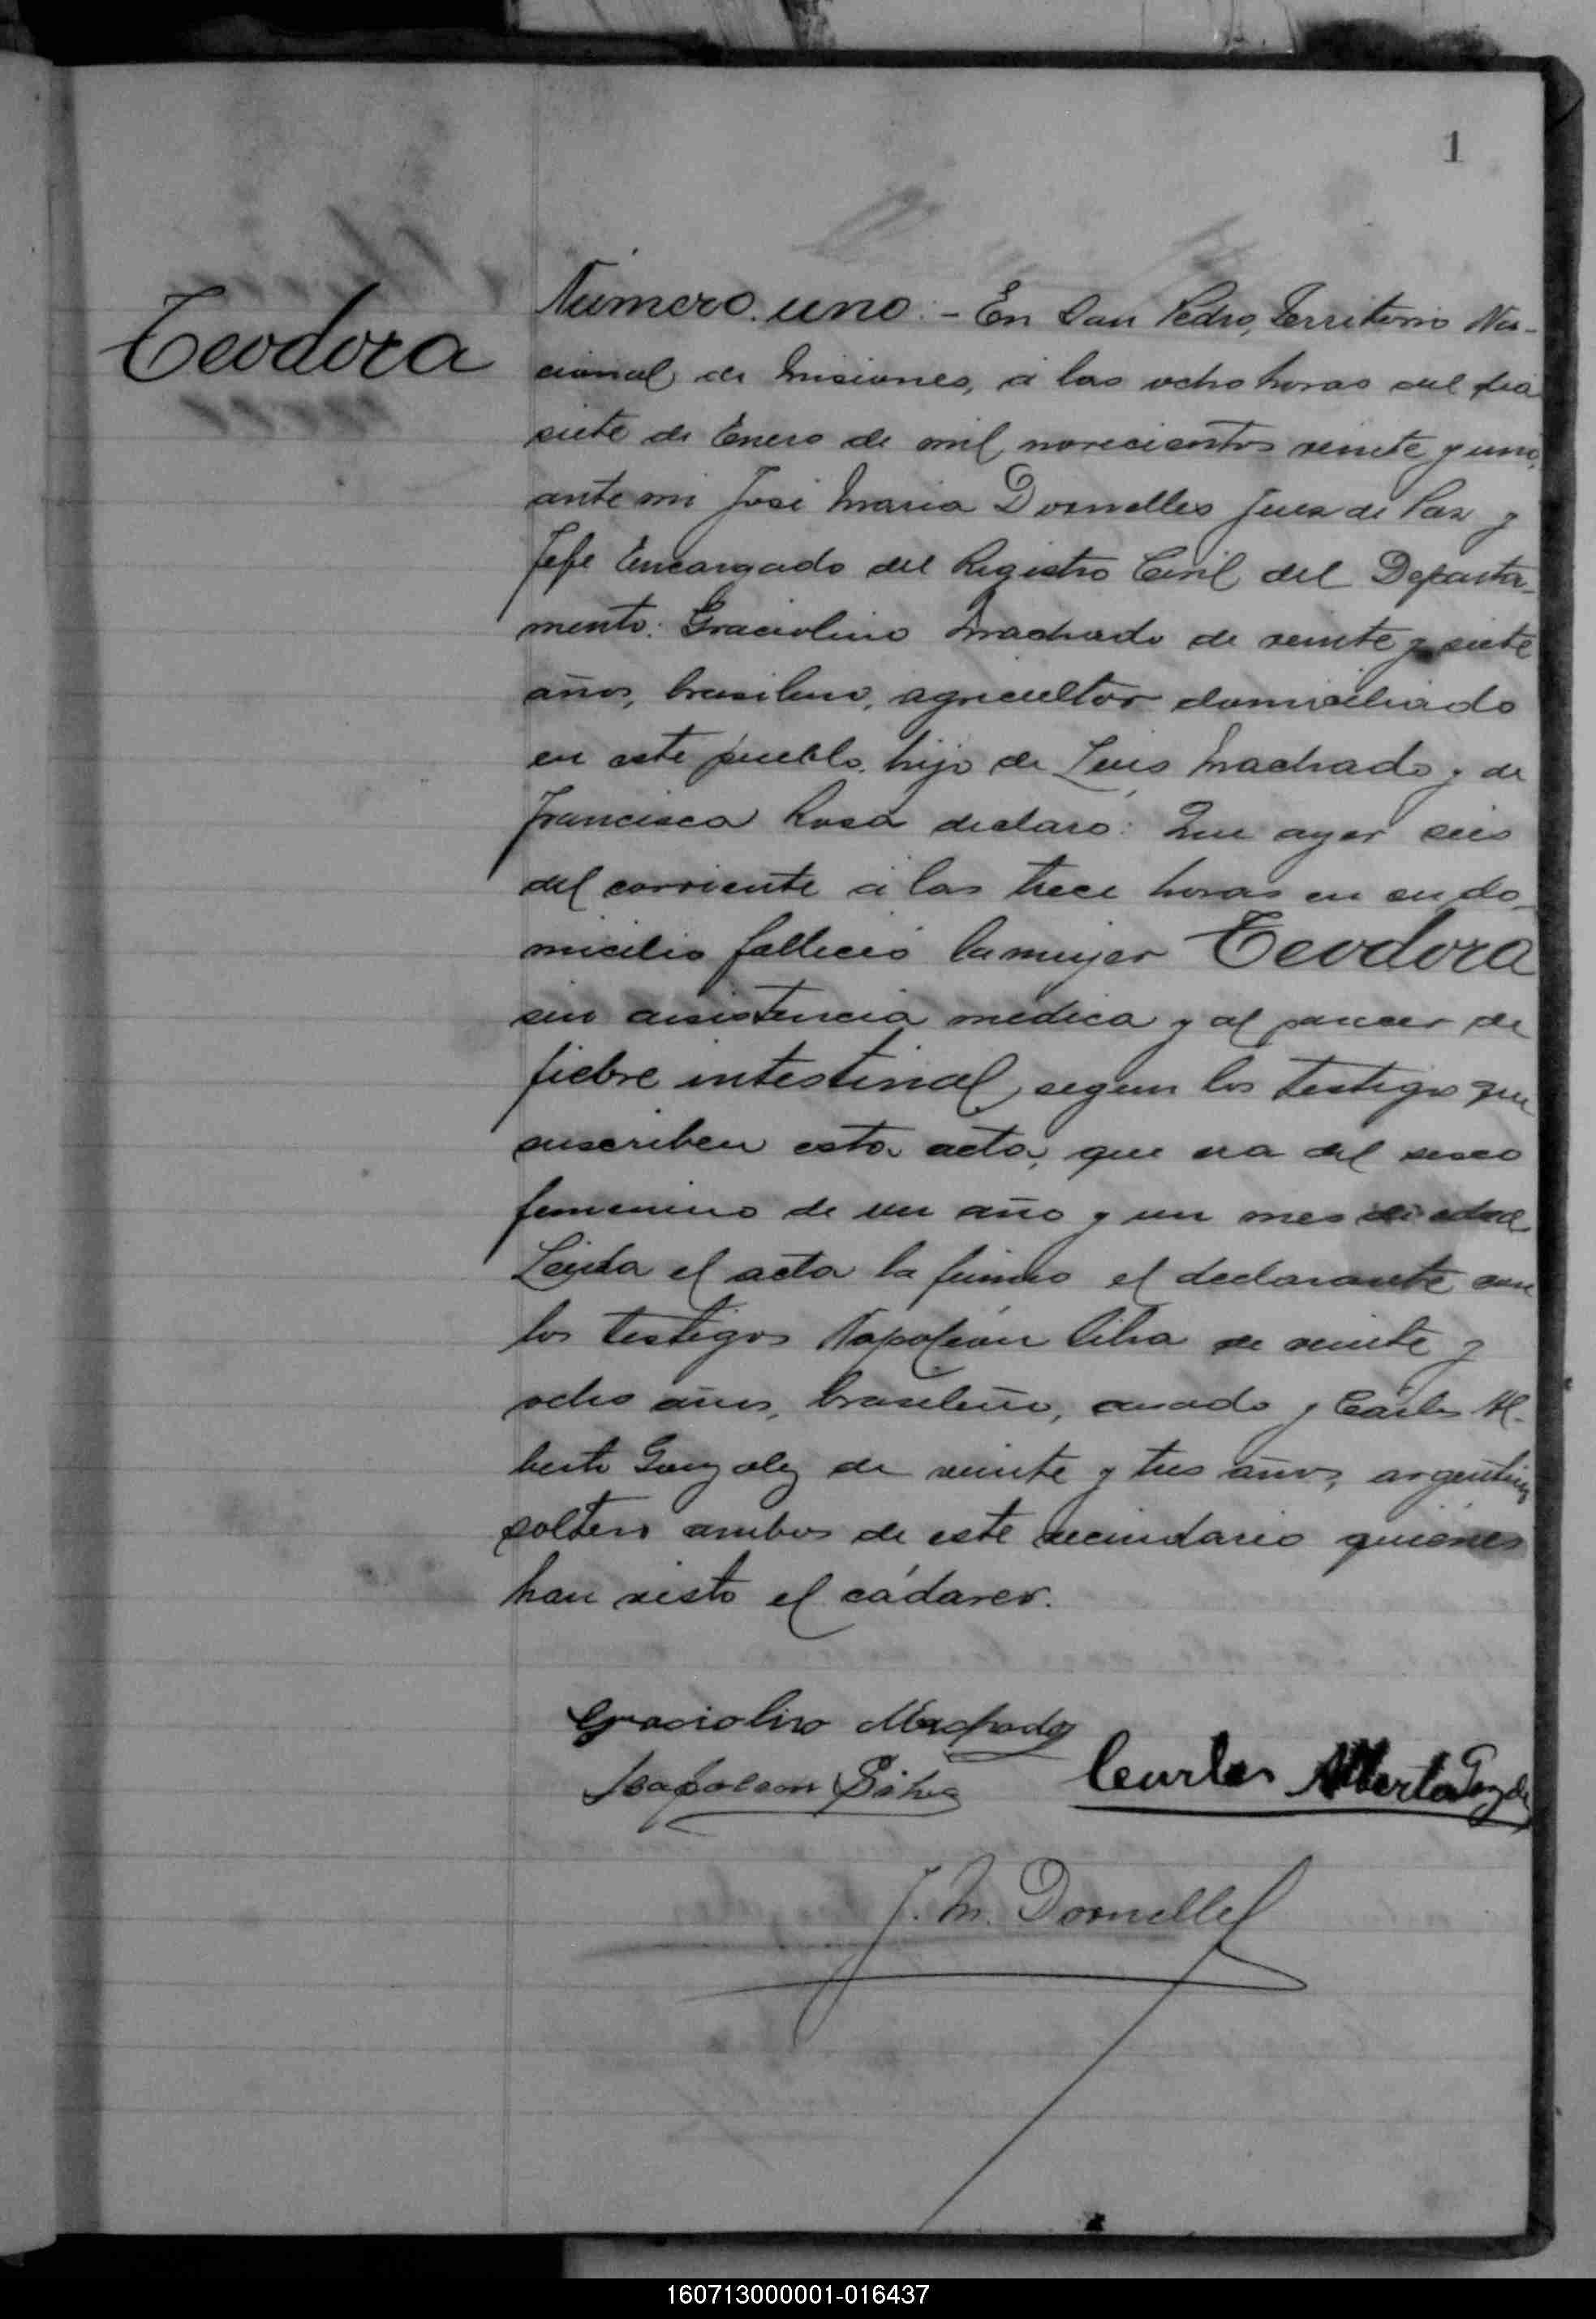 1
Teodora
Número uno: - En San Pedro, Territorio Na-
cional de Misiones, á las ocho horas del dia
siete de Enero de mil novecientos veinte y uno,
ante mi José Maria Dornelles Juez de Paz y
Jefe Encargado del Registro Civil del Departa-
mento: Graciolino Machado de veinte y siete
años, brasilero, agricultor domiciliado
en este pueblo, hijo de Luis Machado y de
Francisca Rosa declaró: Que ayer seis
del corriente á las trece horas en su do-
micilio falleció la mujer Teodora
sin asistencia medica y al parecer de
fiebre intestinal, segun los testigos que
suscriben esta acta, que era del sexo
femenino de un año y un mes de edad
Leida el acta la firmó el declarante con
los testigos Napoleón Silva de veinte y
ocho años, brasileño, casado y Cárlos Al-
berto Gonzalez de veinte y tres años, argentino
soltero ambos de este vecindario quiénes
han visto el cádaver.
Graciolino Machado
Napoleon Silva Carlos Alberto Gonzalez
J. M. Dornelles
160713000001-016437